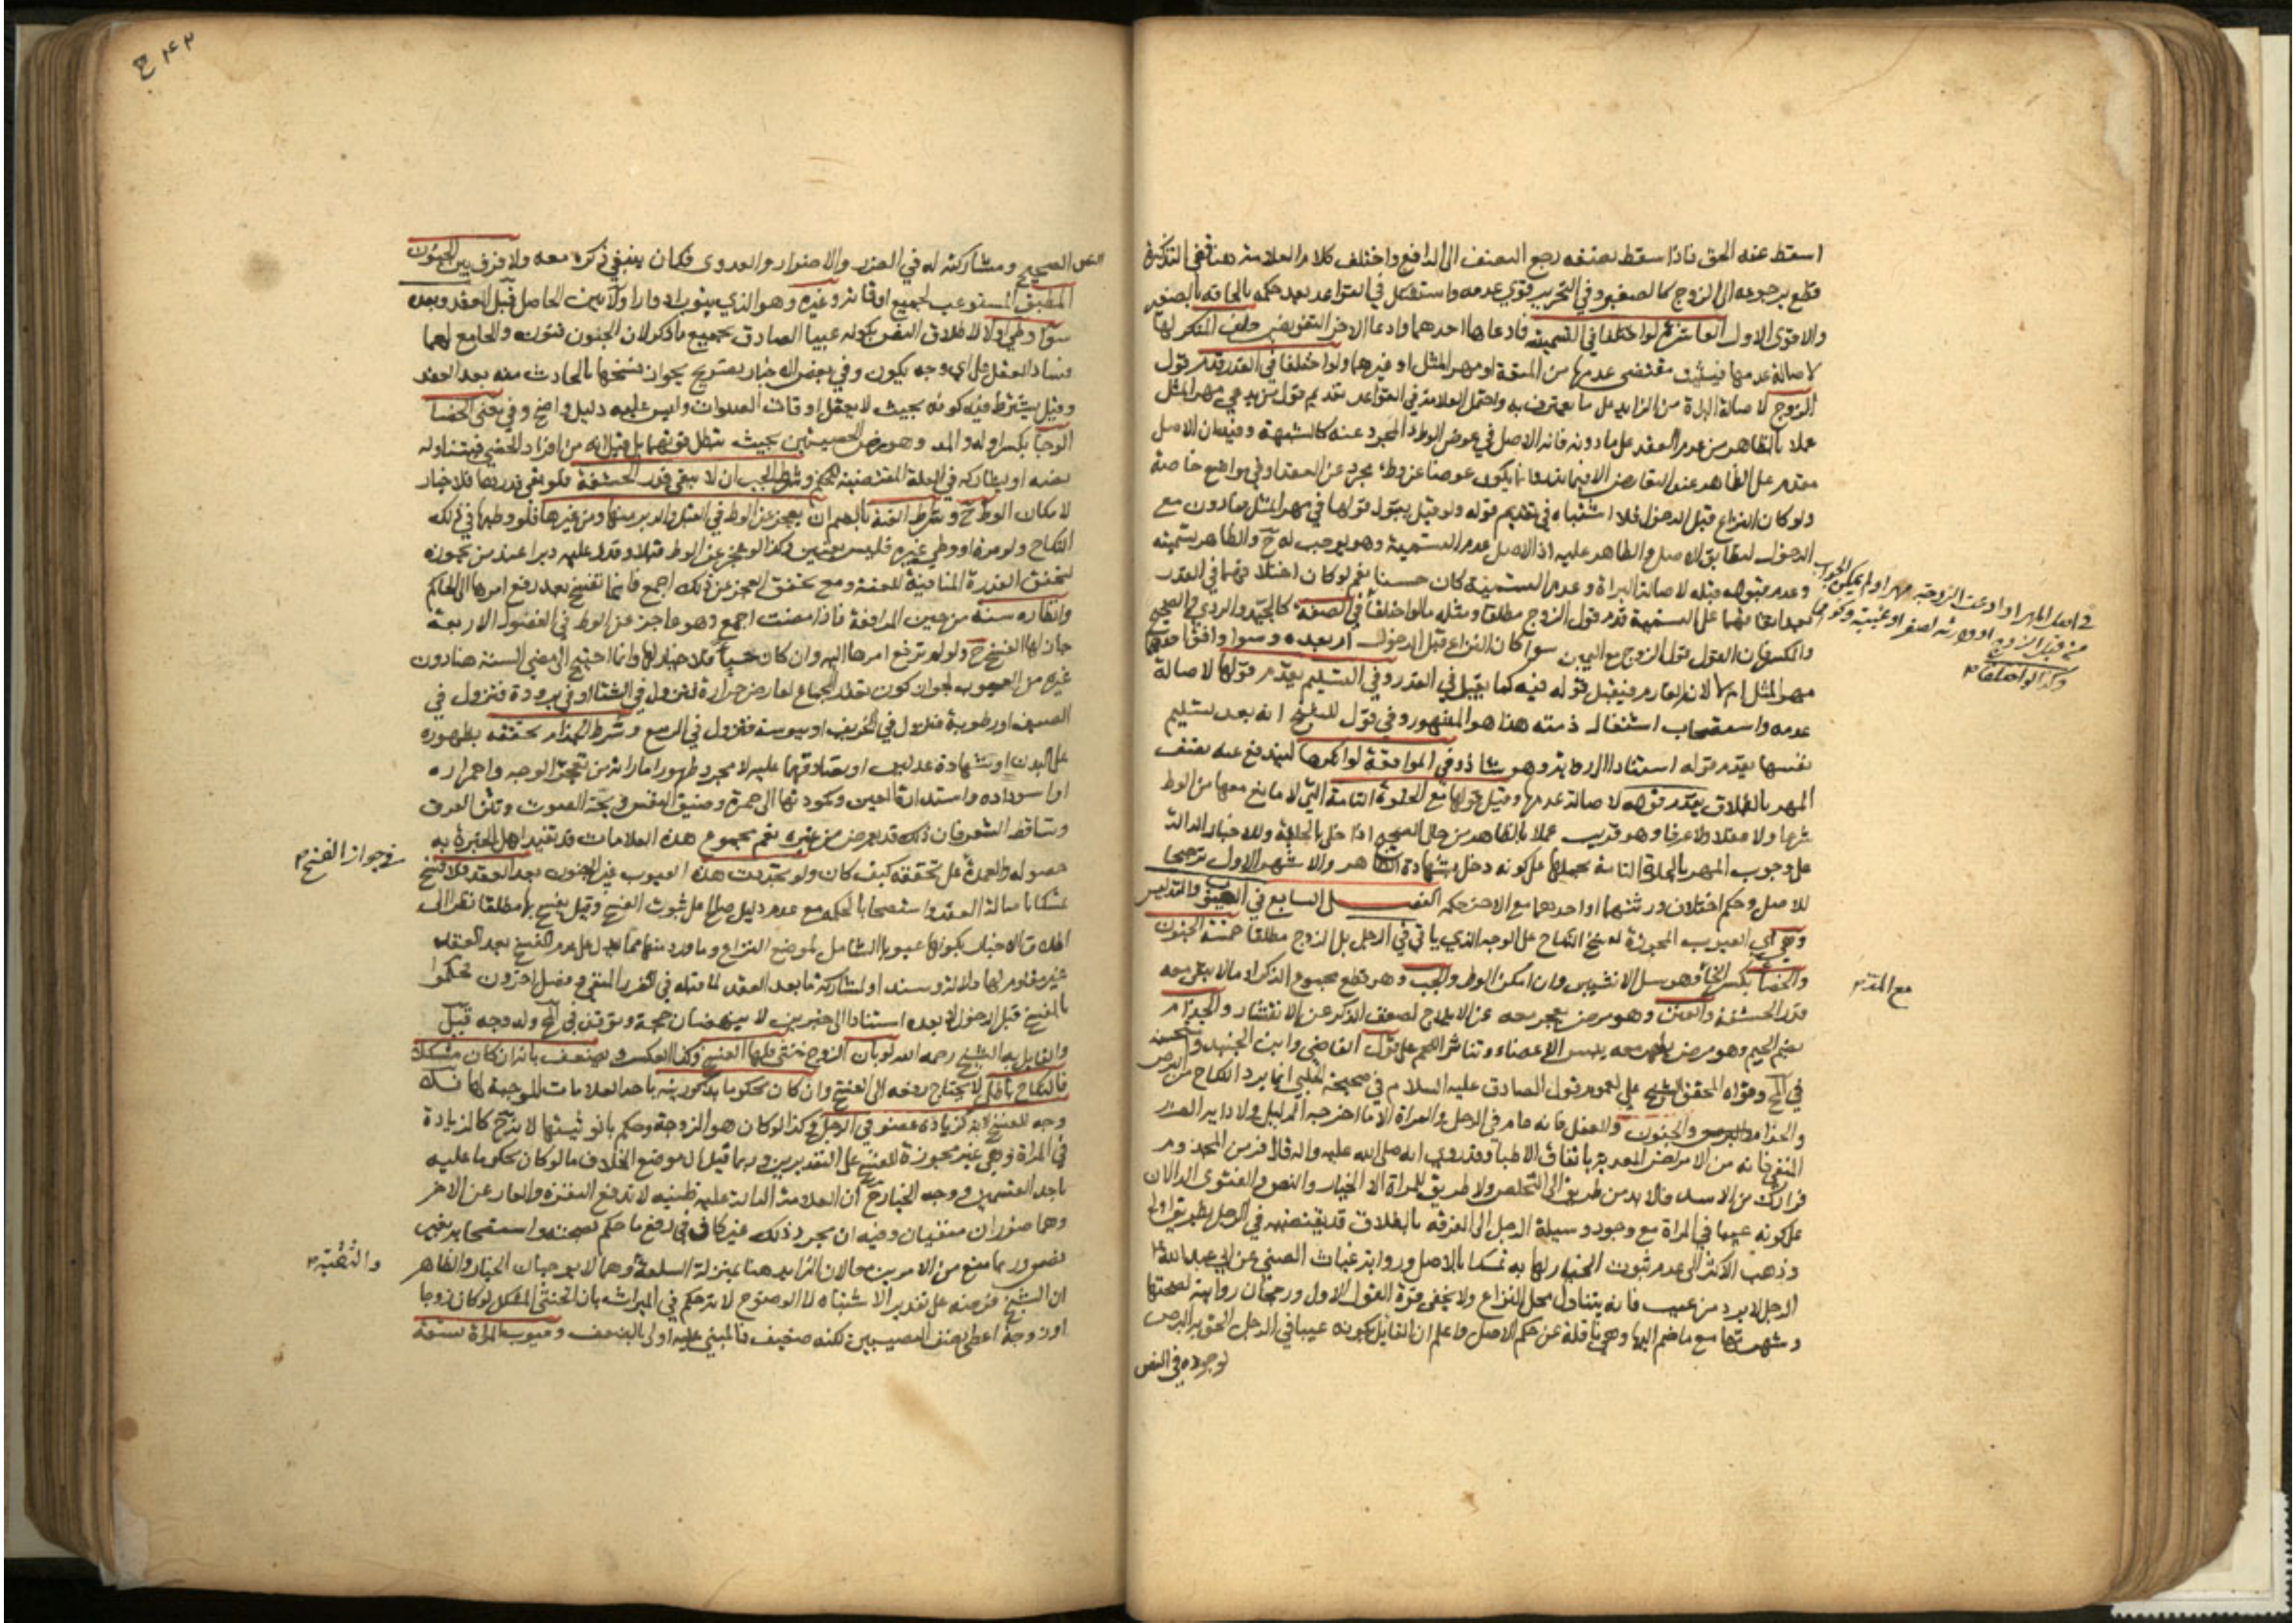 اسقط عنه الحق فاذا سقط نصفه رجع النصف الى الدافع واختلف كلام العلامة هنا ففي التذكرة
قطع برجوعه الى الزوج كالصغير وفي التحرير قوي عدمه واستشكل في القواعد بعد حكمه بالحاقه بالصغير
والاقوى الاول العاشرة لو اختلفا في التسمية فادعاها احدهما وادعا الاخر التفويض حلف المنكر لها
لاصالة عدمها فيثبت مقتضى عدمها من المتعة او مهر المثل او غيرهما ولو اختلفا في القدر قدم قول
الزوج لاصالة البراءة من الزايد على ما يعترف به واحتمل العلامة في القواعد تقديم قول من يدعي مهر المثل
عملا بالظاهر من عدم العقد على ما دونه فانه الاصل في عوض الوطء المجرد عنه كالشبهة وفيه ان الاصل
مقدم على الظاهر عند التعارض الا فيما ندر وانما يكون عوضا عن وطء مجرد عن العقد او في مواضع خاصة
ولو كان النزاع قبل الدخول فلا اشتباه في تقديم قوله ولو قيل بقبول قولها في مهر المثل فما دون مع
الدخول لتطابق الاصل والظاهر عليه اذ الاصل عدم التسمية وهو يوجب له ح والظاهر تسميته
وعدم قبوله قبله لاصالة البراءة وعدم التسمية كان حسنا نعم لو كان اختلافهما في القدر
بعد اتفاقهما على التسمية قدم قول الزوج مطلقا ومثله ما لو اختلفا في الصفة كالجيد والردي والصحيح
والمكسر فان القول قول الزوج مع اليمين سواء كان النزاع قبل الدخول ام بعده وسواء وافق احدهما
مهر المثل ام لا لانه الغارم فيقبل قوله فيه كما يقبل في القدر وفي التسليم يقدم قولها لاصالة
عدمه واستصحاب اشتغال ذمته هذا هو المشهور وفي قول للشيخ انه بعد تسليم
نفسها يقدم قوله استنادا الى رواية وهو شاذ وفي المواقعة لو انكرها ليندفع عنه نصف
المهر بالطلاق يقدم قوله لاصالة عدمها وقيل قولها مع الخلوة التامة التي لا مانع معها من الوطء
شرعا ولا عقلا ولا عرفا وهو قريب عملا بالظاهر من حال الصحيح اذا خلى بالحليلة وللاخبار الدالة
على وجوب المهر بالخلوة التامة بحملها على كونه دخل بشهادة الظاهر والاشهر الاول ترجيحا
للاصل وحكم اختلاف ورثتهما او احدهما مع الاخر حكمه الفصل السابع في العيوب والتدليس
وهي اي العيوب المجوزة لفسخ النكاح على الوجه الذي ياتي في الرجل بل الزوج مطلقا خمسة الجنون
والخصاء بكسر الخاء وهو سل الانثيين وان امكن الوطء والجب وهو قطع مجموع الذكر او ما لا يبقى معه
قدر الحشفة والعنن وهو مرض يعجز معه عن الايلاج لضعف الذكر عن الانتشار والجذام
بضم الجيم وهو مرض يظهر معه يبس الاعضاء وتناثر اللحم على قول القاضي وابن الجنيد واستحسنه
في لف وقواه المحقق الشيخ علي لعموم قول الصادق عليه السلام في صحيحة الحلبي انما يرد النكاح من البرص
والجذام والجنون والعفل فانه عام في الرجل والمراة الا ما اخرجه الدليل ولادايه الضرر
المنفي فانه من الامراض المعدية باتفاق الاطباء وقد روي انه صلى الله عليه واله قال فر من المجذوم
فرارك من الاسد فلا بد من طريق الى التخلص ولا طريق للمراة الا الخيار والنص والفتوى الدالان
على كونه عيبا في المراة مع وجود وسيلة الرجل الى الفرقة بالطلاق قد يقتضيه في الرجل بطريق اولى
وذهب الاكثر الى عدم ثبوت الخيار لها به تمسكا بالاصل ورواية غياث الضبي عن ابي عبد الله ع
الرجل لا يرد من عيب فانه يتناول محل النزاع ولا يخفى قوة القول الاول ورجحان روايته لصحتها
وشهرتها مع ما ضم اليها وهي ناقلة عن حكم الاصل واعلم ان القايل بكونه عيبا في الرجل الحق به البرص
لوجوده في النص
في اصل المهر او ادعت الزوجة مهرا ولم يمكن الجواب
من قبل الزوج او وارثه لصغر او غيبة ونحوهما
وكذا لو اختلفا
مع المدة
٤٢ ع
النص الصحيح ومشاركته له في الضرر والاضرار والعدوى فكان ينبغي ذكره معه ولا فرق بين الجنون
المطبق المستوعب لجميع اوقاته وغيره وهو الذي ينوب ادوارا ولا بين الحاصل قبل العقد وبعده
سواء وطي اولا لاطلاق النص بكونه عيبا الصادق بجميع ما ذكر لان الجنون فنون والجامع لهما
فساد العقل على اي وجه يكون وفي بعض الاخبار تصريح بجواز فسخها بالحادث منه بعد العقد
وقيل يشترط فيه كونه بحيث لا يعقل اوقات الصلوات وليس عليه دليل واضح وفي معنى الخصاء
الوجاء بكسر اوله والمد وهو رض الخصيتين بحيث تبطل قوتهما بل قيل انه من افراد الخصي فيتناوله
نصه او يشاركه في العلة المقتضية للحكم وشرط الجب ان لا يبقى قدر الحشفة فلو بقي قدرها فلا خيار
لامكان الوطء ح وشرط العنة بالضم ان يعجز عن الوطء في القبل والدبر منها ومن غيرها فلو وطئها في ذلك
النكاح ولو مرة او وطي غيرها فليس بعنين وكذا لو عجز عن الوطء قبلا وقدر عليه دبرا عند من يجوزه
لتحقق القدرة المنافية للعنة ومع تحقق العجز عن ذلك اجمع فانما تفسخ بعد رفع امرها الى الحاكم
وانظاره سنة من حين المرافعة فاذا مضت اجمع وهو عاجز عن الوطء في الفصول الاربعة
جاز لها الفسخ ح ولو لم ترفع امرها اليه وان كان حياء فلا خيار لها وانما احتيج الى مضي السنة هنا دون
غيره من العيوب لجواز كون تعذر الجماع لعارض حرارة فيزول في الشتاء او في برودة فيزول في
الصيف او رطوبة فيزول في الخريف او يبوسة فيزول في الربيع وشرط الجذام تحققه بظهوره
على البدن او شهادة عدلين او تصادقهما عليه لا مجرد ظهور اماراته من تعجر الوجه واحمراره
او اسوداده واستدارة العين وكمودتها الى حمرة وضيق النفس وبحة الصوت ونتن العرق
وتساقط الشعر فان ذلك قد يعرض من غيره نعم مجموع هذه العلامات قد تفيد اهل الخبرة به
حصوله والعمدة على تحققه كيف كان ولو تجددت هذه العيوب غير الجنون بعد العقد فلا فسخ
تمسكا باصالة العقد واستصحابا لحكمه مع عدم دليل صالح على ثبوت الفسخ وقيل يفسخ بها مطلقا نظرا الى
اطلاق الاخبار بكونها عيوبا الشامل لموضع النزاع وما ورد منها مما يدل على عدم الفسخ بعد العقد
غير مقاوم لها دلالة وسندا ولمشاركة ما بعد العقد لما قبله في الضرر المنفي وفصل اخرون فحكموا
بالفسخ قبل الدخول لا بعده استنادا الى خبرين لا ينهضان حجة وتوقف في لف وله وجه قيل
والقايل به الشيخ رحمه الله لو بان الزوج خنثى فلها الفسخ وكذا العكس ويضعف بانه ان كان مشكلا
فالنكاح باطل لا يحتاج رفعه الى الفسخ وان كان محكوما بذكوريته باحد العلامات الموجبة لها فلا
وجه للفسخ لانه كزيادة عضو في الرجل وكذا لو كان هو الزوجة وحكم بانوثيتها لانه ح كالزيادة
في المراة وهي غير مجوزة للفسخ على التقديرين وربما قيل ان موضع الخلاف ما لو كان محكوما عليه
باحد القسمين ووجه الخيار ح ان العلامة الدالة عليه ظنية لا تدفع النفرة والعار عن الاخر
وهما ضرران منفيان وفيه ان مجرد ذلك غير كاف في رفع ما حكم بصحته واستصحابه بغير
نص وربما منع من الامرين معا لان الزايد هنا بمنزلة السلعة وهما لا يوجبان الخيار والظاهر
ان الشيخ فرضه على تقدير الاشتباه لا الوضوح لانه حكم في الميراث بان الخنثى المشكل لو كان زوجا
او زوجة اعطي نصف النصيبين لكنه ضعيف فالمبني عليه اولى بالضعف وعيوب المراة تسعة
في جواز الفسخ
والثقبة